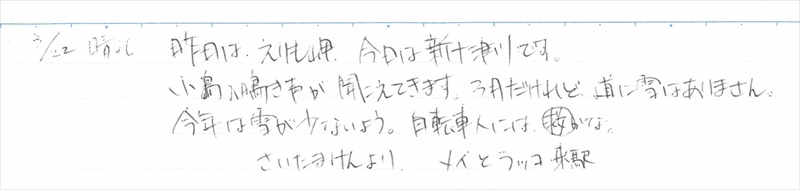 3/22 晴れ 昨日は、えりも岬、今日は新十津川です。
小鳥の鳴き声が聞こえてきます。3月だけれど、道に雪はありません。
今年は雪が少ないよう。自転車人には、かな。
さいたまけんより、メイとラッコ 来駅